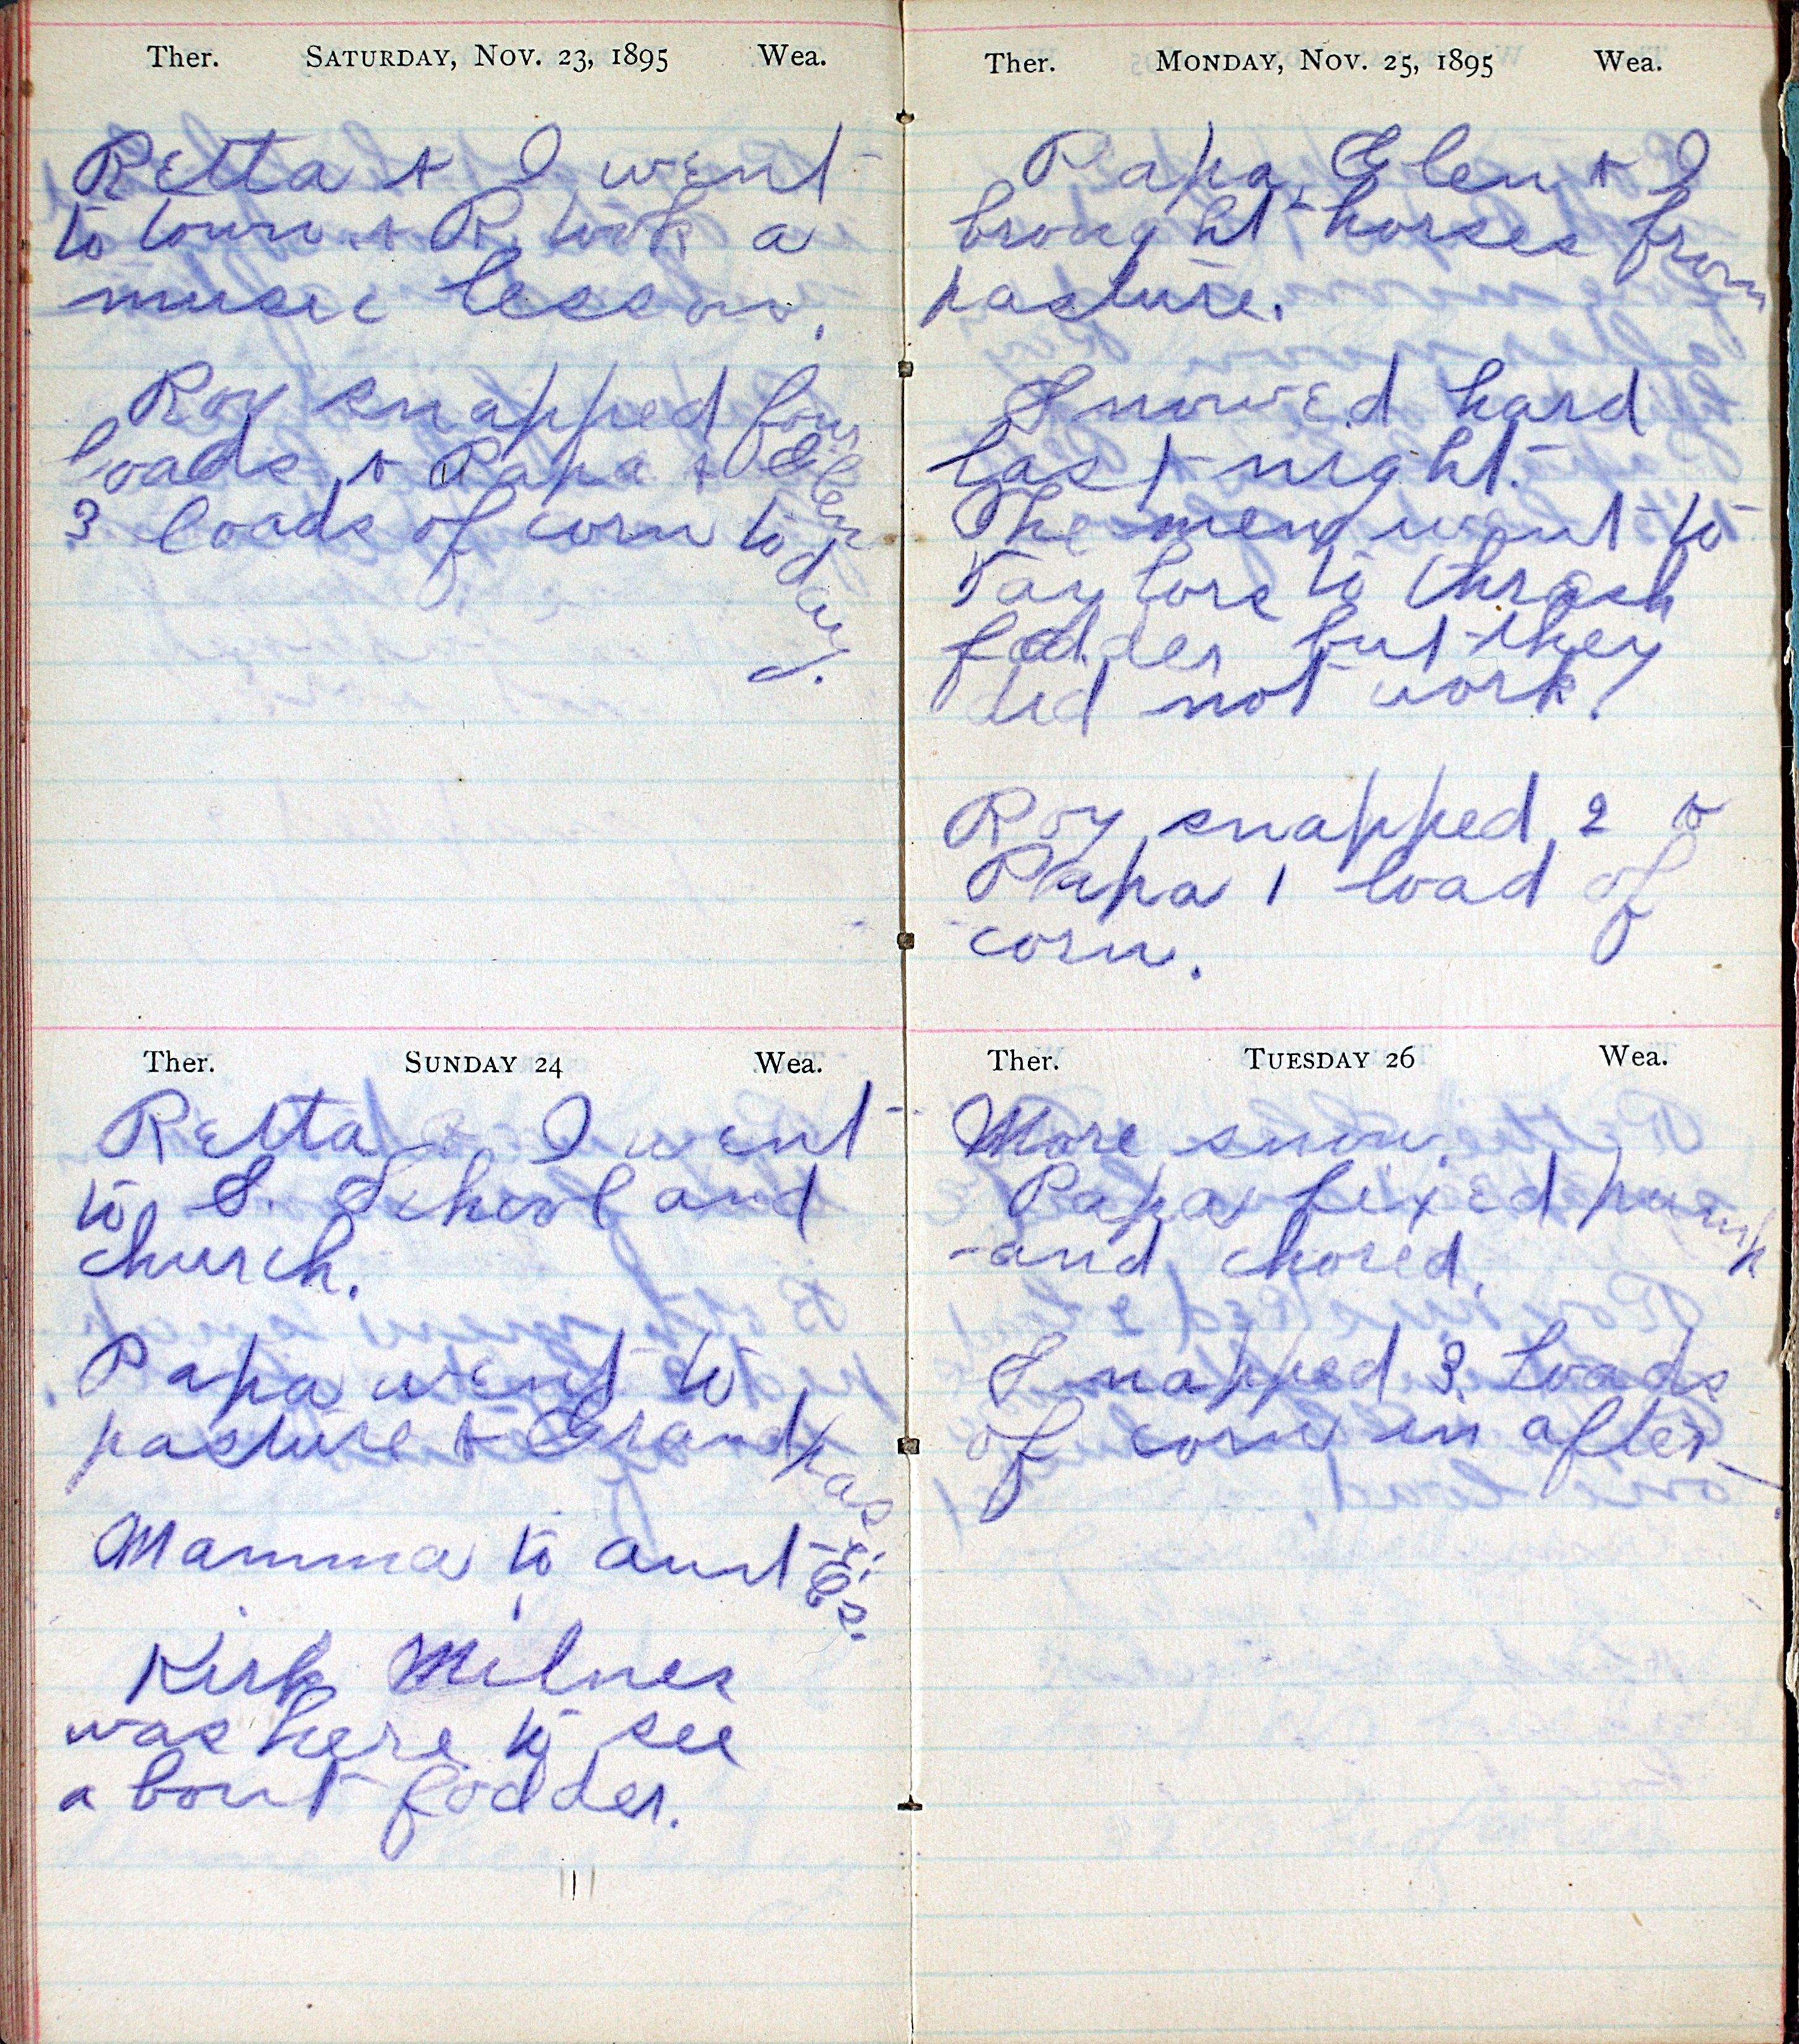 Ther. Saturday, Nov. 23, 1895 Wea.
Retta & I went
to town & R. took a
music lesson.
Roy snapped four
loads & Papa & Glen
3 loads of corn today.
Ther. Sunday 24 Wea.
Retta & I went
to S. School and
church.
Papa went to
pasture & Grandpas
Mamma to aunt E's.
Kirk Milnes
was here to see
about fodder.
Ther. Monday, Nov. 25, 1895 Wea.
Papa, Glen & I
brought horses from
pasture.
Snowed hard
last night.
The men went to
Taylors to thrash
fodder but they
did not work.
Roy snapped 2 &
Papa 1 load of
corn.
Ther. Tuesday 26 Wea.
More snow.
Papa fixed pump
and chored.
Snapped 3 loads
of corn in after-